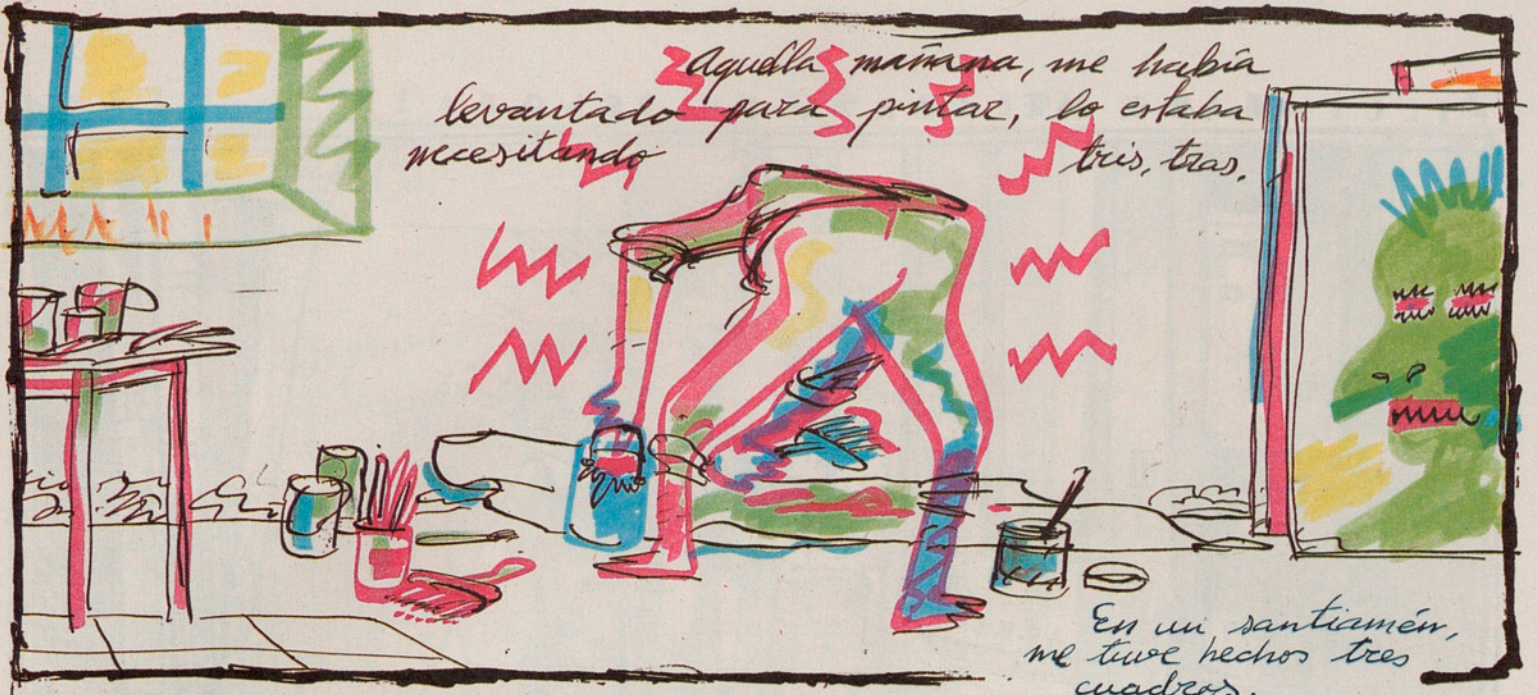 Aquella mañana, me había
levantado para pintar, lo estaba
necesitando tris, tras.
En un santiamén,
me tuve hechos tres
cuadros.